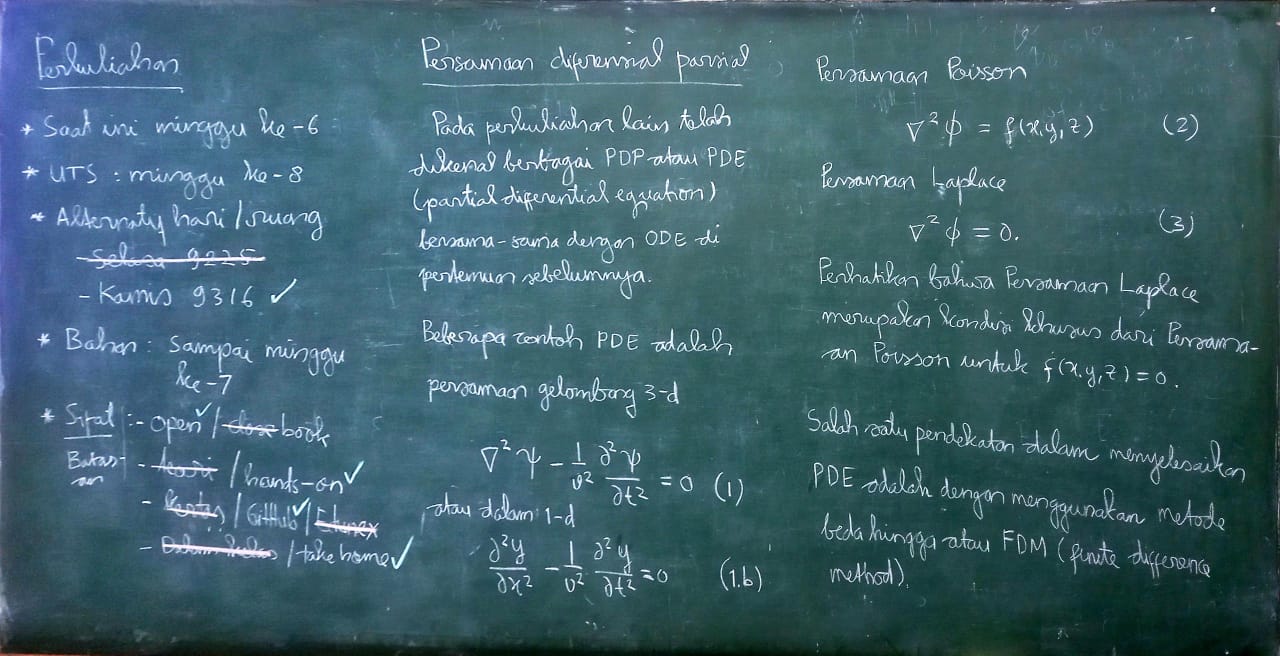 Perkuliahan
* Saat ini minggu ke-6
* UTS : minggu ke-8
* Alternatif hari / ruang
- Selasa 9225
- Kamis 9316 ✓
* Bahan : sampai minggu
ke-7
* Sifat : - open ✓ / close book
Batas-
an
- teori / hands-on ✓
- Kertas / GitHub ✓ / Edunex
- Dalam kelas / take home ✓
Persamaan diferensial parsial
Pada perkuliahan lain telah
dikenal berbagai PDP atau PDE
(partial differential equation)
bersama-sama dengan ODE di
pertemuan sebelumnya.
Beberapa contoh PDE adalah
persamaan gelombang 3-d
∇²ψ - 1/v² ∂²ψ/∂t² = 0 (1)
atau dalam 1-d
∂²y/∂x² - 1/v² ∂²y/∂t² = 0 (1.b)
Persamaan Poisson
∇²ϕ = f(x,y,z) (2)
Persamaan Laplace
∇²ϕ = 0. (3)
Perhatikan bahwa Persamaan Laplace
merupakan kondisi khusus dari Persama-
an Poisson untuk f(x,y,z) = 0.
Salah satu pendekatan dalam menyelesaikan
PDE adalah dengan menggunakan metode
beda hingga atau FDM (finite difference
method).